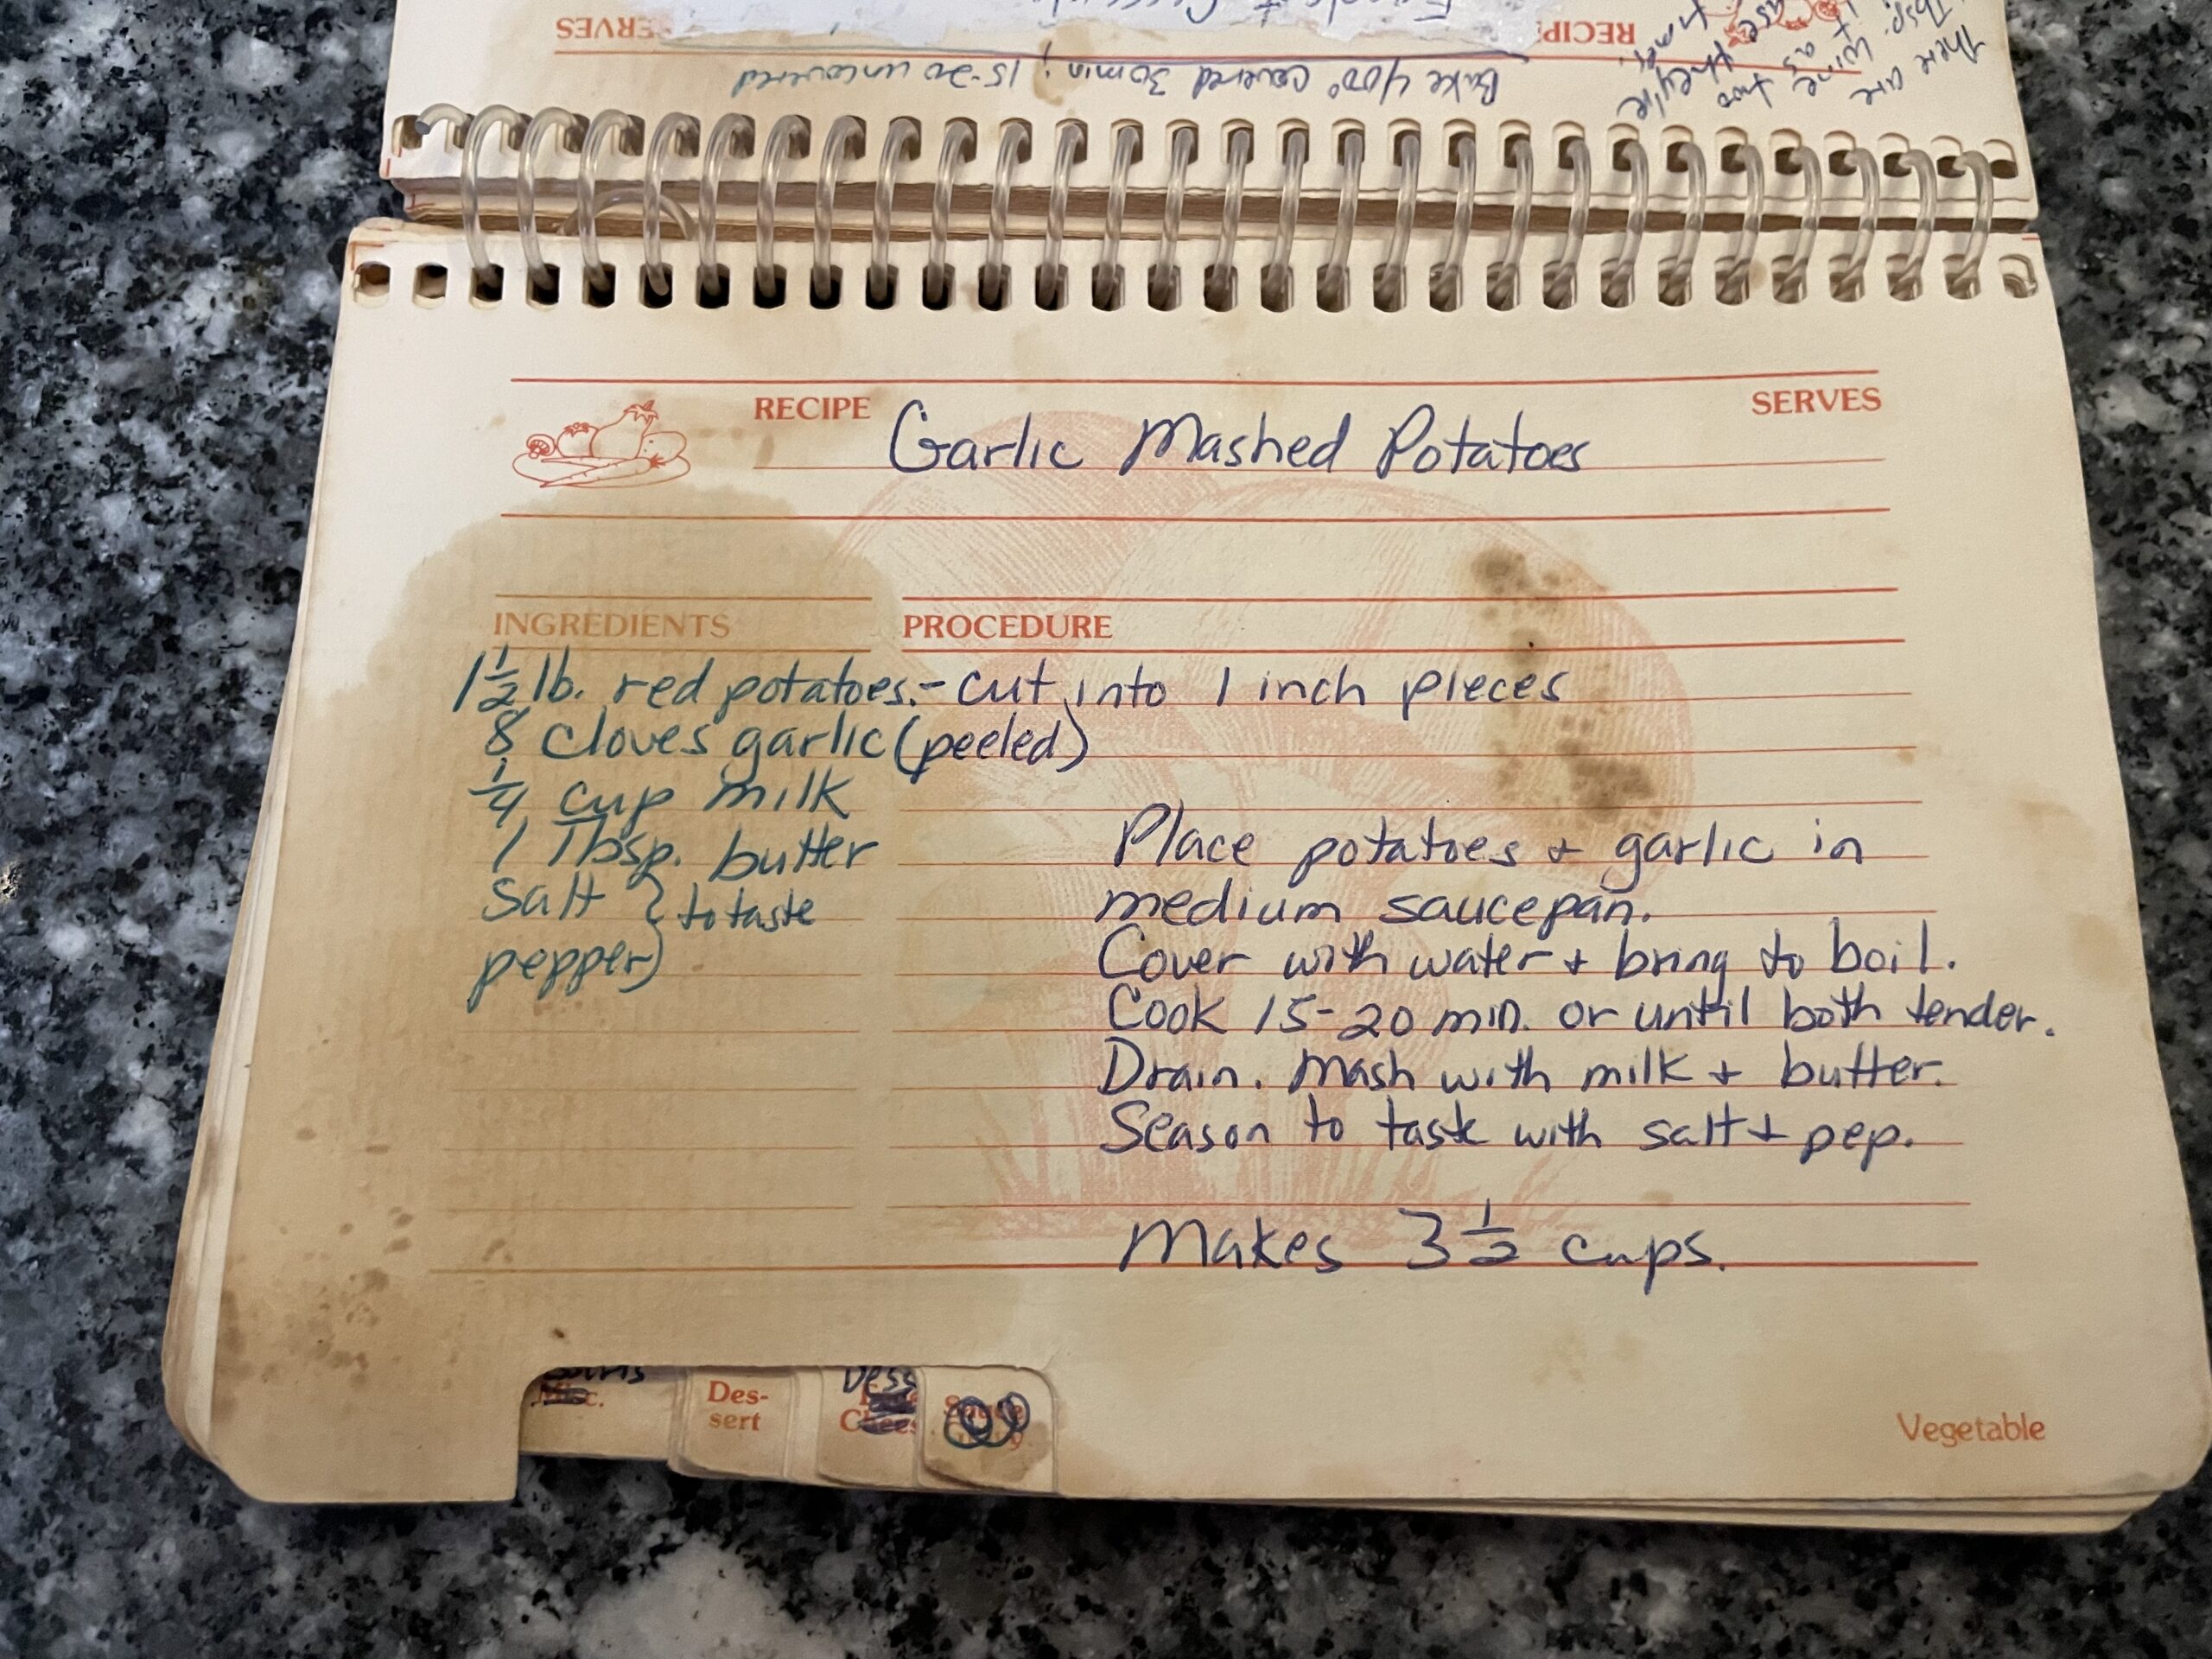 SERVES
RECIPE
Bake 400° covered 30min; 15-20 uncovered
There are two
Tbsp. wine as they're
RECIPE Garlic Mashed Potatoes SERVES
INGREDIENTS PROCEDURE
1 1/2 lb. red potatoes. - cut into 1 inch pieces
8 cloves garlic (peeled)
1/4 cup milk
1 Tbsp. butter
Salt } to taste
pepper)
Place potatoes + garlic in
medium saucepan.
Cover with water + bring to boil.
Cook 15-20 min. or until both tender.
Drain. Mash with milk + butter.
Season to taste with salt + pep.
Makes 3 1/2 cups.
Misc.
Des-
sert
Dess
Vegetable